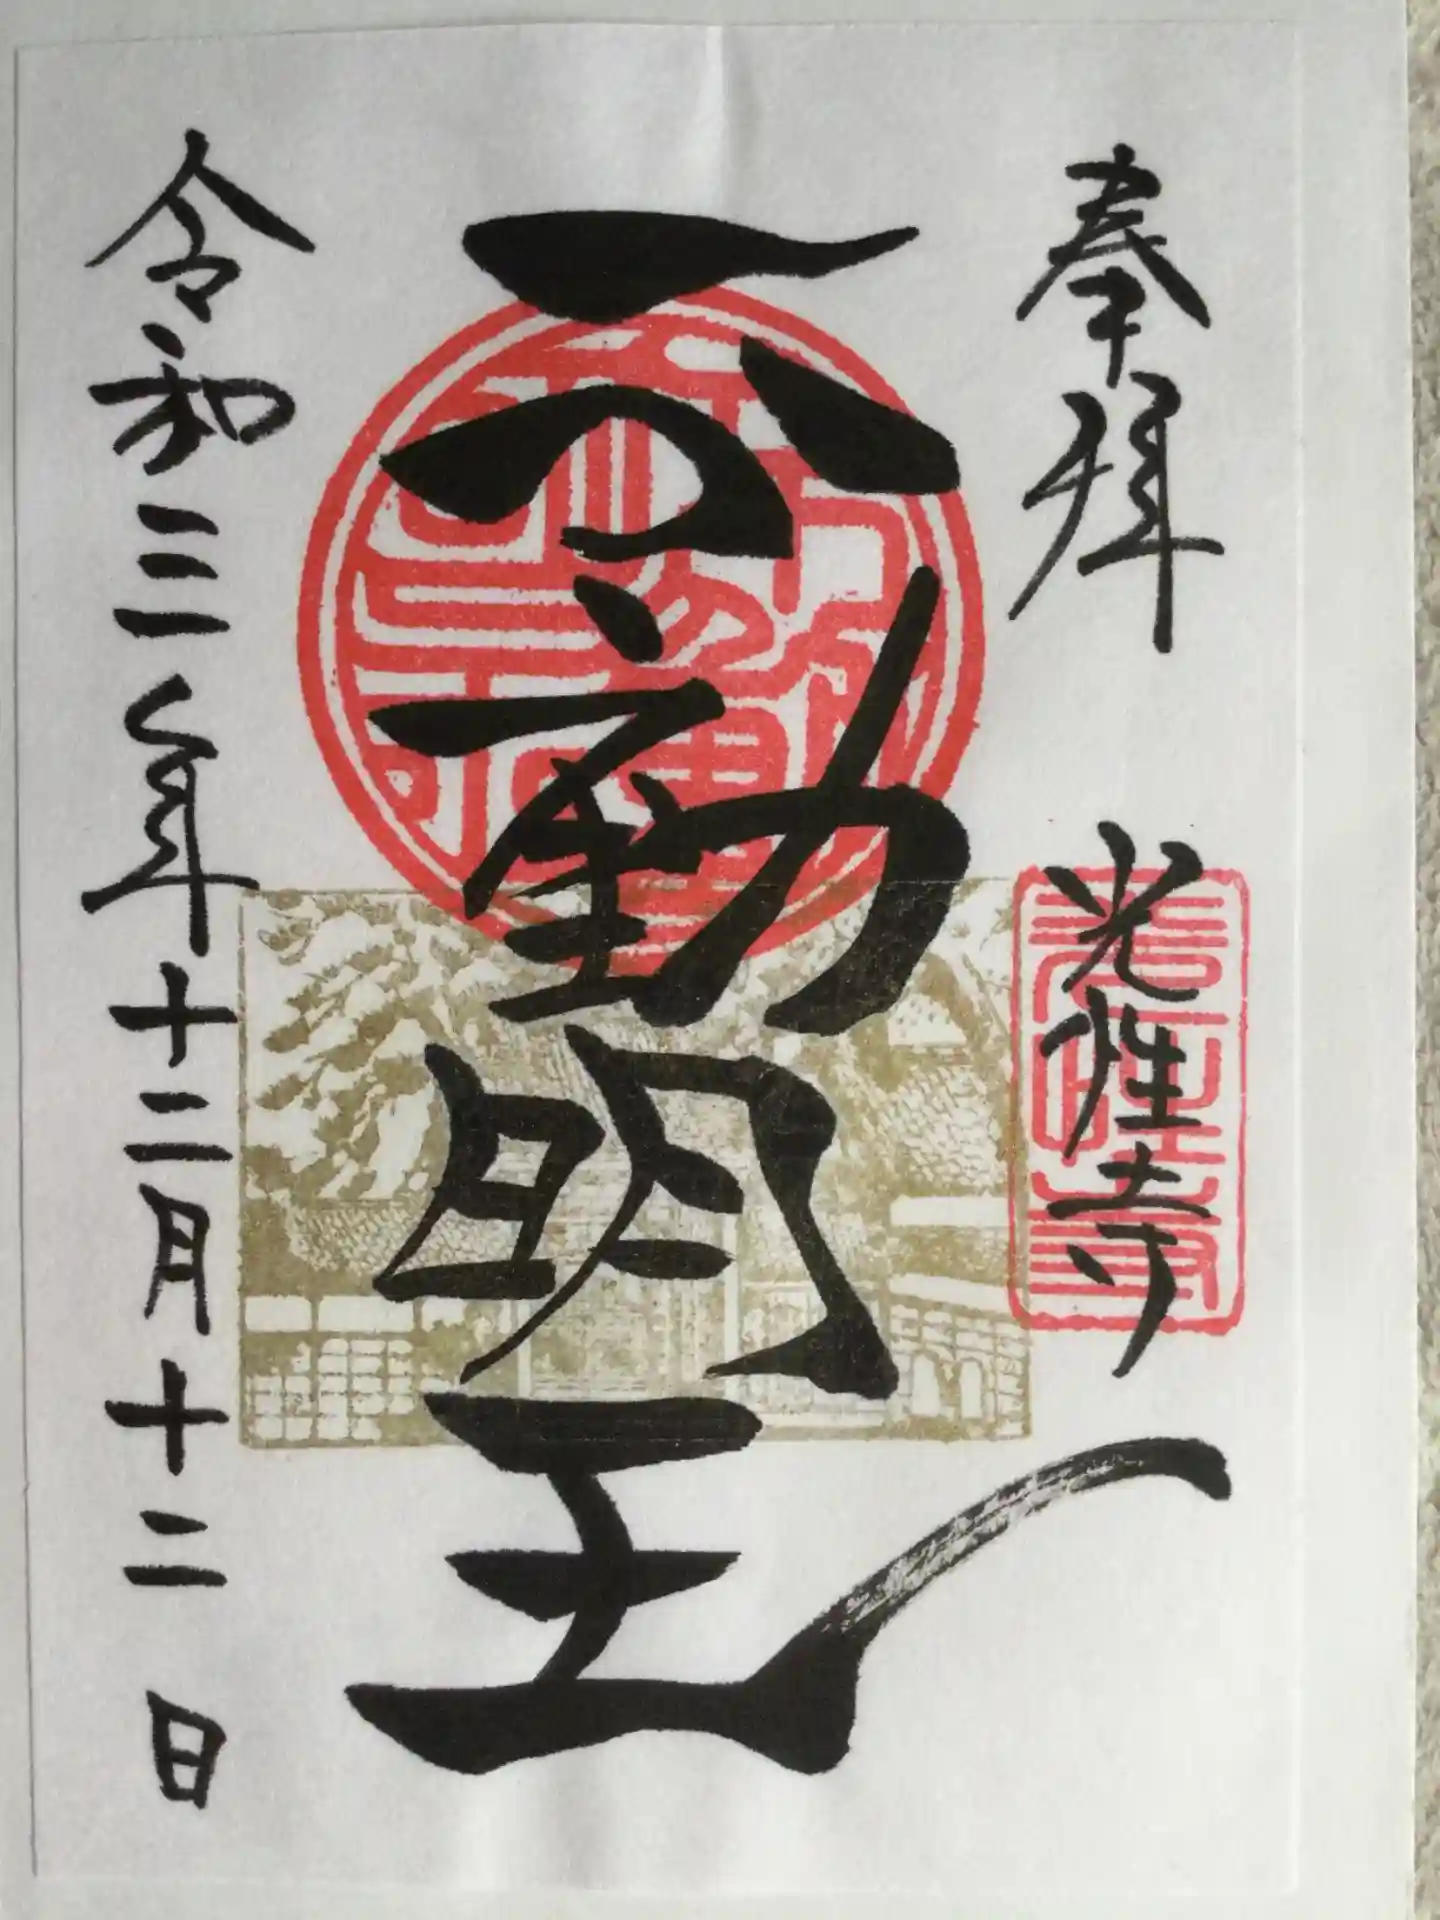 奉拝 光性寺
不動明王
令和三年十二月十二日
光性寺